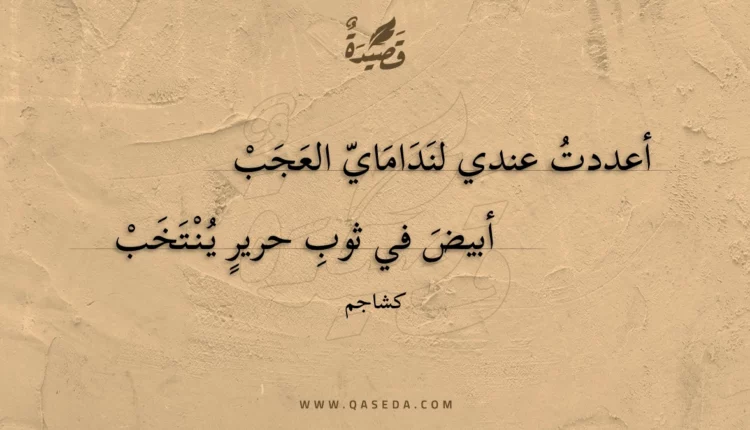 قَصِيدَةٌ
أعددتُ عندي لنَدَامَايّ العَجَبْ
أبيضَ في ثوبِ حريرٍ يُنْتَخَبْ
كشاجم
WWW.QASEDA.COM